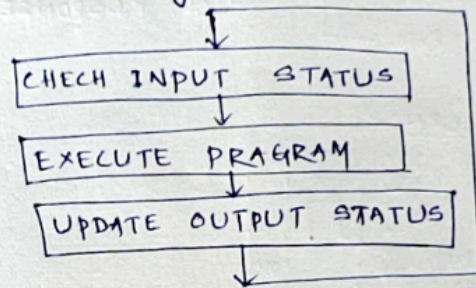 CHECH INPUT STATUS
EXECUTE PRAGRAM
UPDATE OUTPUT STATUS